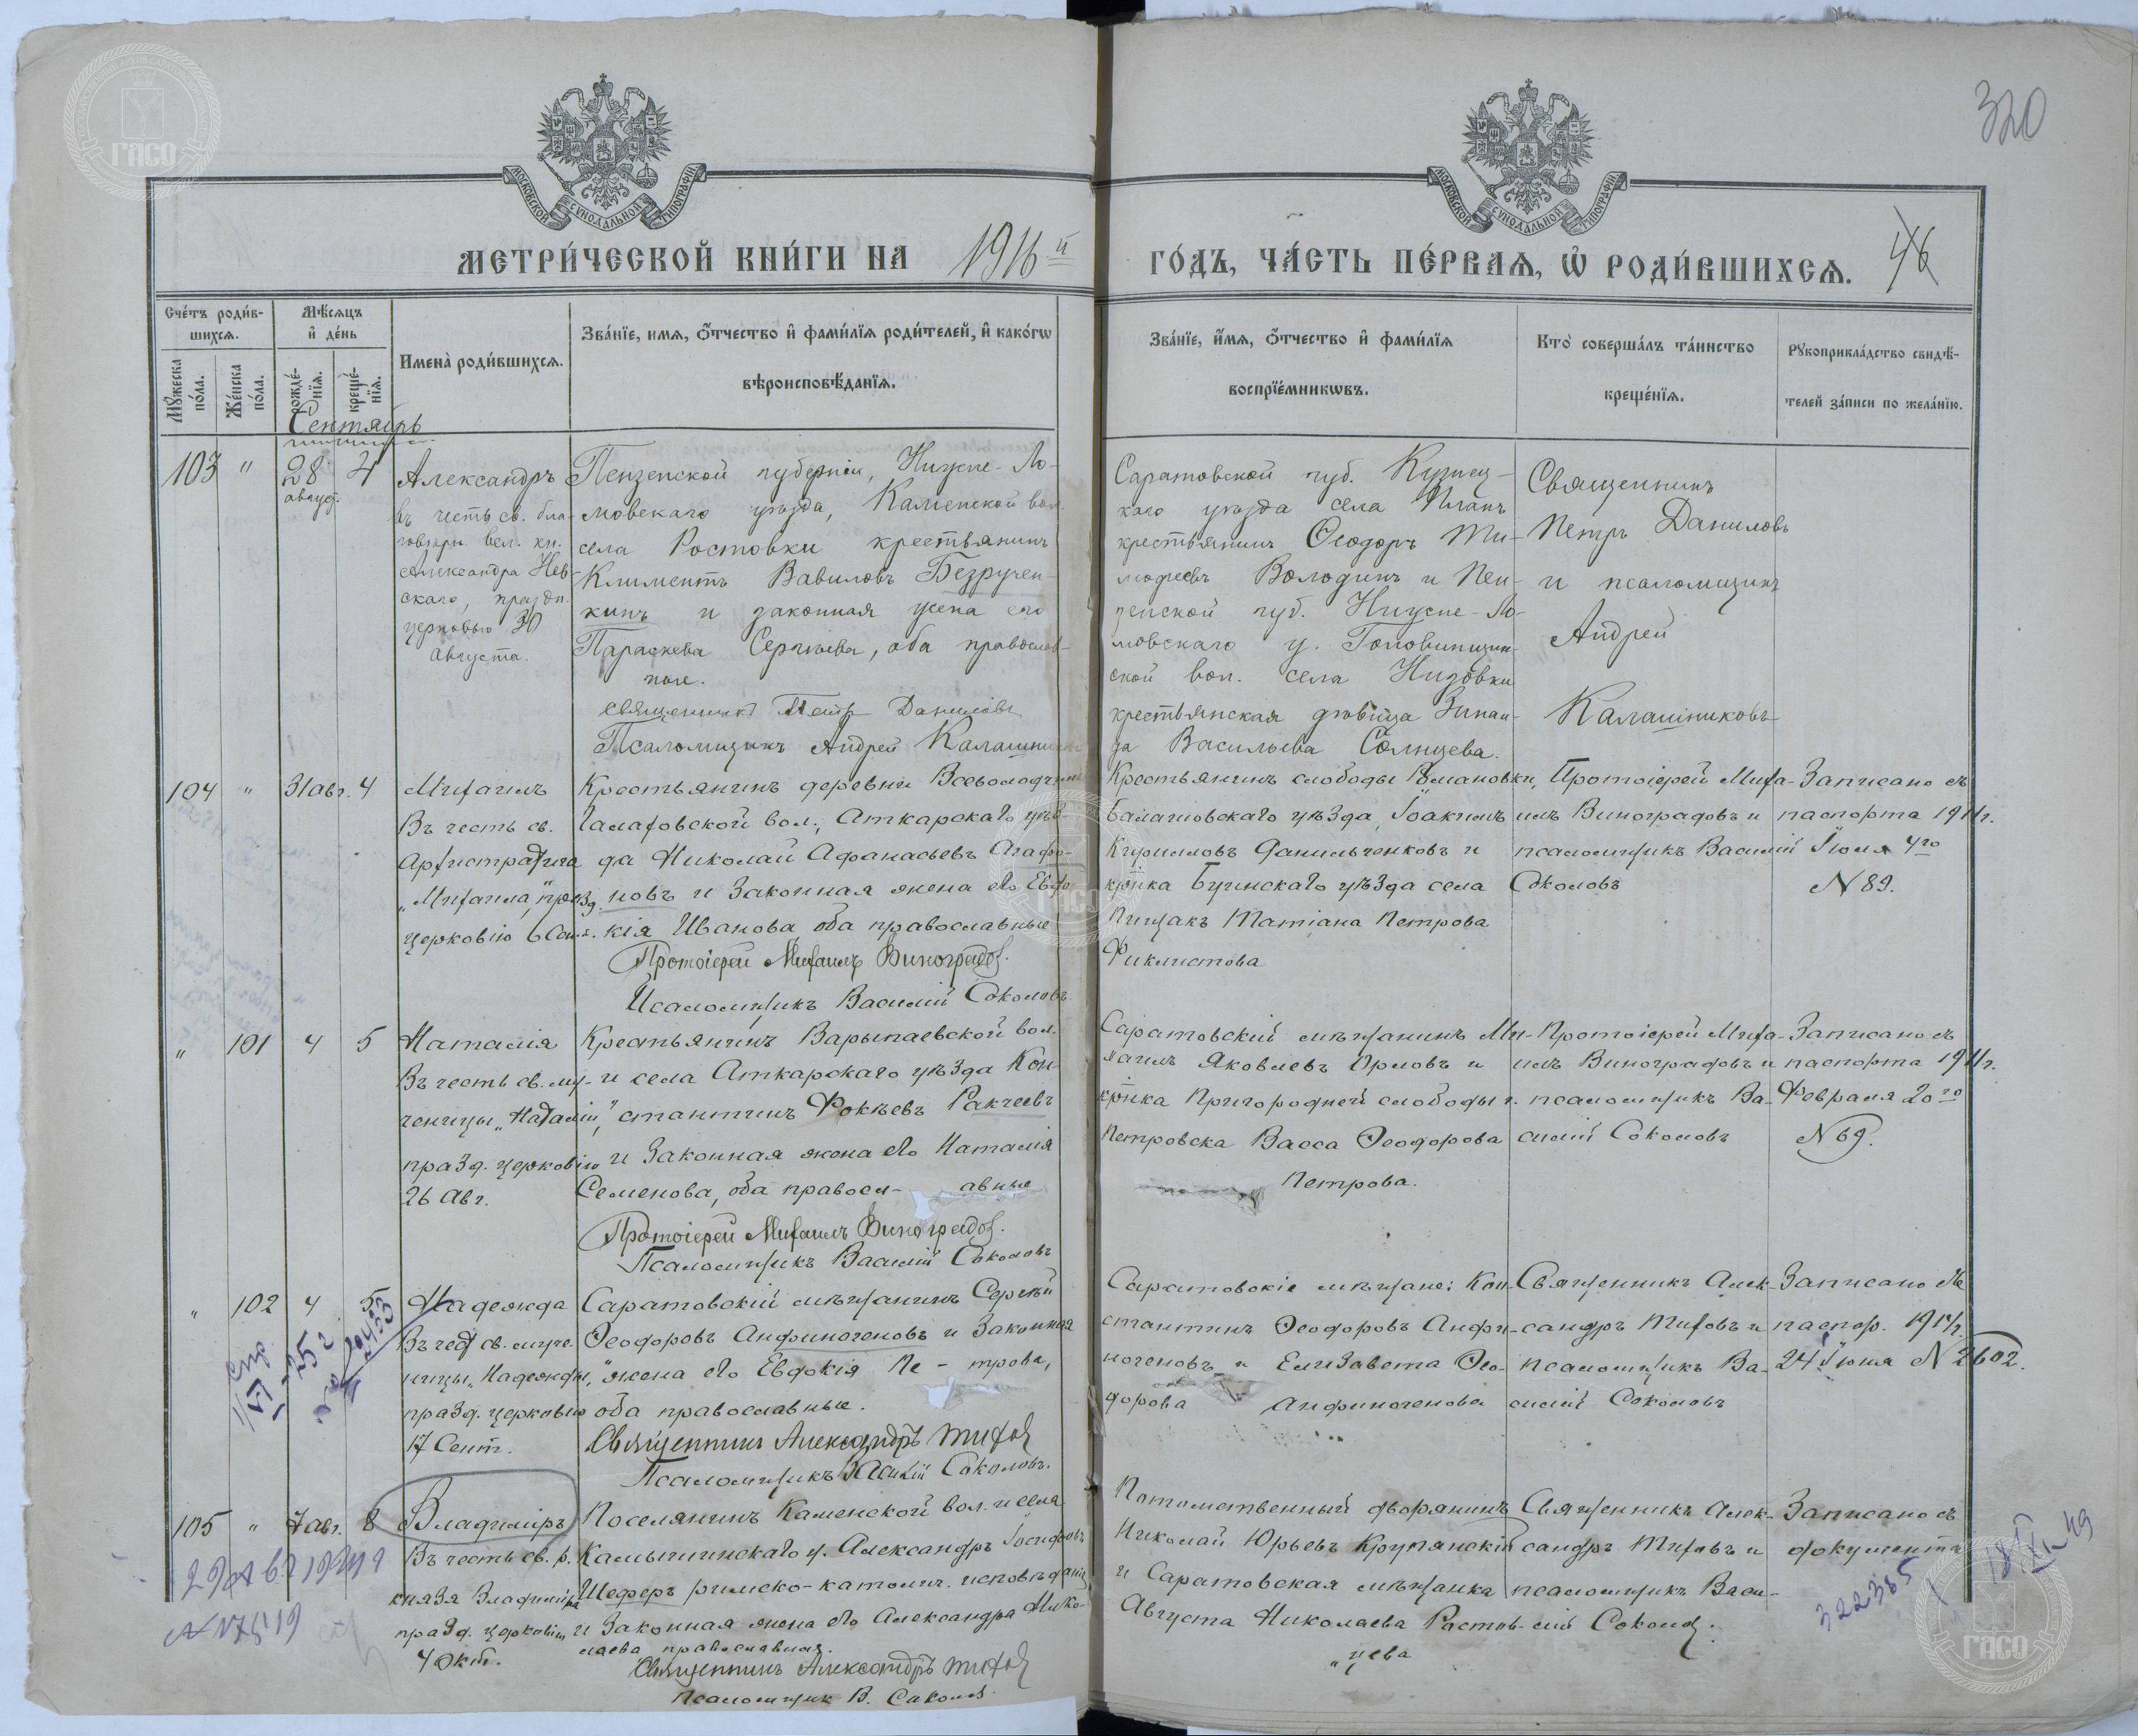 320
МЕТРИ́ЧЕСКОЙ КНИ́ГИ НА 1916 й ГО́ДЪ, ЧА́СТЬ ПЕ́РВАѦ, Ѡ҆ РОДИ́ВШИХСѦ.
46
Сче́тъ роди́в-
шихсѧ.
Мѣ́сѧцъ
и҆ де́нь
Имена̀ роди́вшихсѧ.
Зва́нїе, имѧ, ѻ҆́тчество и҆ фами́лїѧ роди́телей, и҆ како́гѡ
вѣроисповѣ́данїѧ.
Зва́нїе, и҆́мѧ, ѻ҆́тчество и҆ фами́лїѧ
воспрїе́мникѡвъ.
Кто̀ соверша́лъ та́инство
креще́нїѧ.
Рꙋкоприкла́дство свидѣ́-
телей за́писи по жела́нїю.
Мꙋ́жеска
по́ла.
Же́нска
по́ла.
рожде́-
нїѧ.
креще́-
нїѧ.
Сентябрь
103 " 28 4
август.
Александръ
въ честь св. бла-
говѣрн. вел. кн.
Александра Нев-
скаго, праздн.
церковью 30
августа.
Пензенской губерніи, Нижне-Ло-
мовскаго уѣзда, Каменской вол.
села Ростовки крестьянинъ
Климентъ Вавиловъ Безручен-
кинъ и законная жена его
Параскева Сергѣева, оба православ-
ные.
Священникъ Петръ Даниловъ
Псаломщикъ Андрей Калашниковъ
Саратовской губ. Кузнец-
каго уѣзда села Планъ
крестьянинъ Ѳеодоръ Ти-
моѳеевъ Володинъ и Пен-
зенской губ. Нижне-Ло-
мовскаго у. Головинщин-
ской вол. села Низовки
крестьянская дѣвица Зинаи-
да Васильева Солнцева.
Священникъ
Петръ Даниловъ
и псаломщикъ
Андрей
Калашниковъ
104 " 31 авг. 4
Михаилъ
Въ честь св.
Архистратига
„Михаила", празд.
церковію 6 Сент.
Крестьянинъ деревни Всеволодчины
Галаховской вол., Аткарскаго уѣз-
да Николай Афанасьевъ Агафо-
новъ и законная жена его Евдо-
кія Иванова, оба православные
Протоіерей Михаилъ Виноградов.
Псаломщикъ Василій Соколовъ
Крестьянинъ слободы Романовки,
Балашовскаго уѣзда, Іоакимъ
Кирилловъ Данильченковъ и
кр̃нка Буинскаго уѣзда села
Пищакъ Татіана Петрова
Фиклистова
Протоіерей Миха-
илъ Виноградовъ и
псаломщикъ Василій
Соколовъ
Записано съ
паспорта 1911г.
Іюля 4го
N 89.
" 101 4 5
Наталія
Въ честь св. му-
ченицы „Наталіи",
празд. церковію
26 Авг.
Крестьянинъ Варыпаевской вол.
и села Аткарскаго уѣзда Кон-
стантинъ Фокѣевъ Ракчеевъ
и законная жена его Наталія
Семенова, оба правосл- авные
Протоіерей Михаилъ Виноградов.
Псаломщикъ Василій Соколовъ
Саратовскій мѣщанинъ Ми-
хаилъ Яковлевъ Орловъ и
кр̃нка Пригородней слободы г.
Петровска Васса Ѳеодорова
Петрова.
Протоіерей Миха-
илъ Виноградовъ и
псаломщикъ Ва-
силій Соколовъ
Записано съ
паспорта 1911г.
Февраля 20го
N 69.
" 102 4 5
Надежда
Въ чест св. муче-
ницы „Надежды",
празд. церковію
17 Сент.
Саратовскій мѣщанинъ Сергѣй
Ѳеодоровъ Анфиногеновъ и законная
жена его Евдокія Пе - трова,
оба православные.
Священникъ Александръ Тихов
Псаломщикъ Василій Соколовъ.
Саратовскіе мѣщане: Кон-
стантинъ Ѳеодоровъ Анфи-
ногеновъ и Елизавета Ѳео-
дорова Анфиногенова
Священникъ Алек-
сандръ Тиховъ и
псаломщикъ Ва-
силій Соколовъ
Записано съ
паспор.
24 Іюня N 2602.
105 " 7 авг. 8
Владиміръ
Въ честь св. р.
князя Владиміра
празд. церковію
4 Окт.
Поселянинъ Каменской вол. и села
Камышинскаго у. Александръ Іосифовъ
Шеферъ римско-католич. исповѣданія
и законная жена его Александра Нико-
лаева православная.
Священникъ Александръ Тихов
Псаломщикъ В. Соколов.
Потомственный дворянинъ
Николай Юрьевъ Крупянскій
и Саратовская мѣщанка
Августа Николаева Растов-
цева
Священникъ Алек-
сандръ Тиховъ и
псаломщикъ Васи-
лій Соколов.
Записано съ
документа
322385